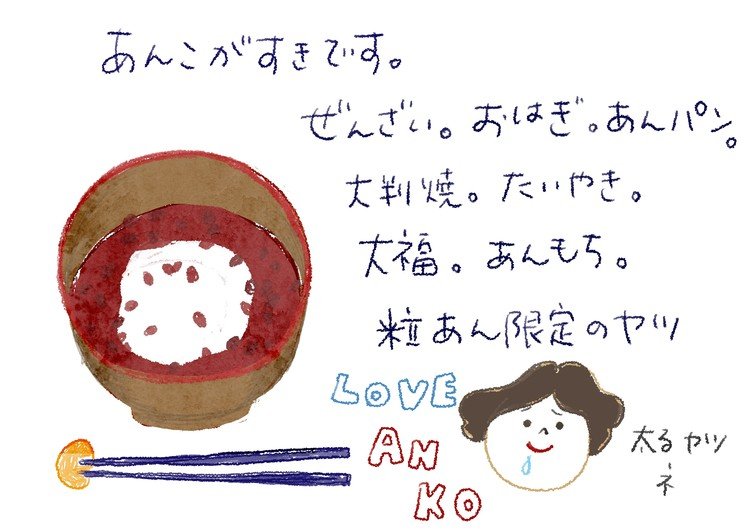 あんこがすきです。
ぜんざい。おはぎ。あんパン。
大判焼。たいやき。
大福。あんもち。
粒あん限定のヤツ
LOVE
AN
KO
太るヤツ
ネ